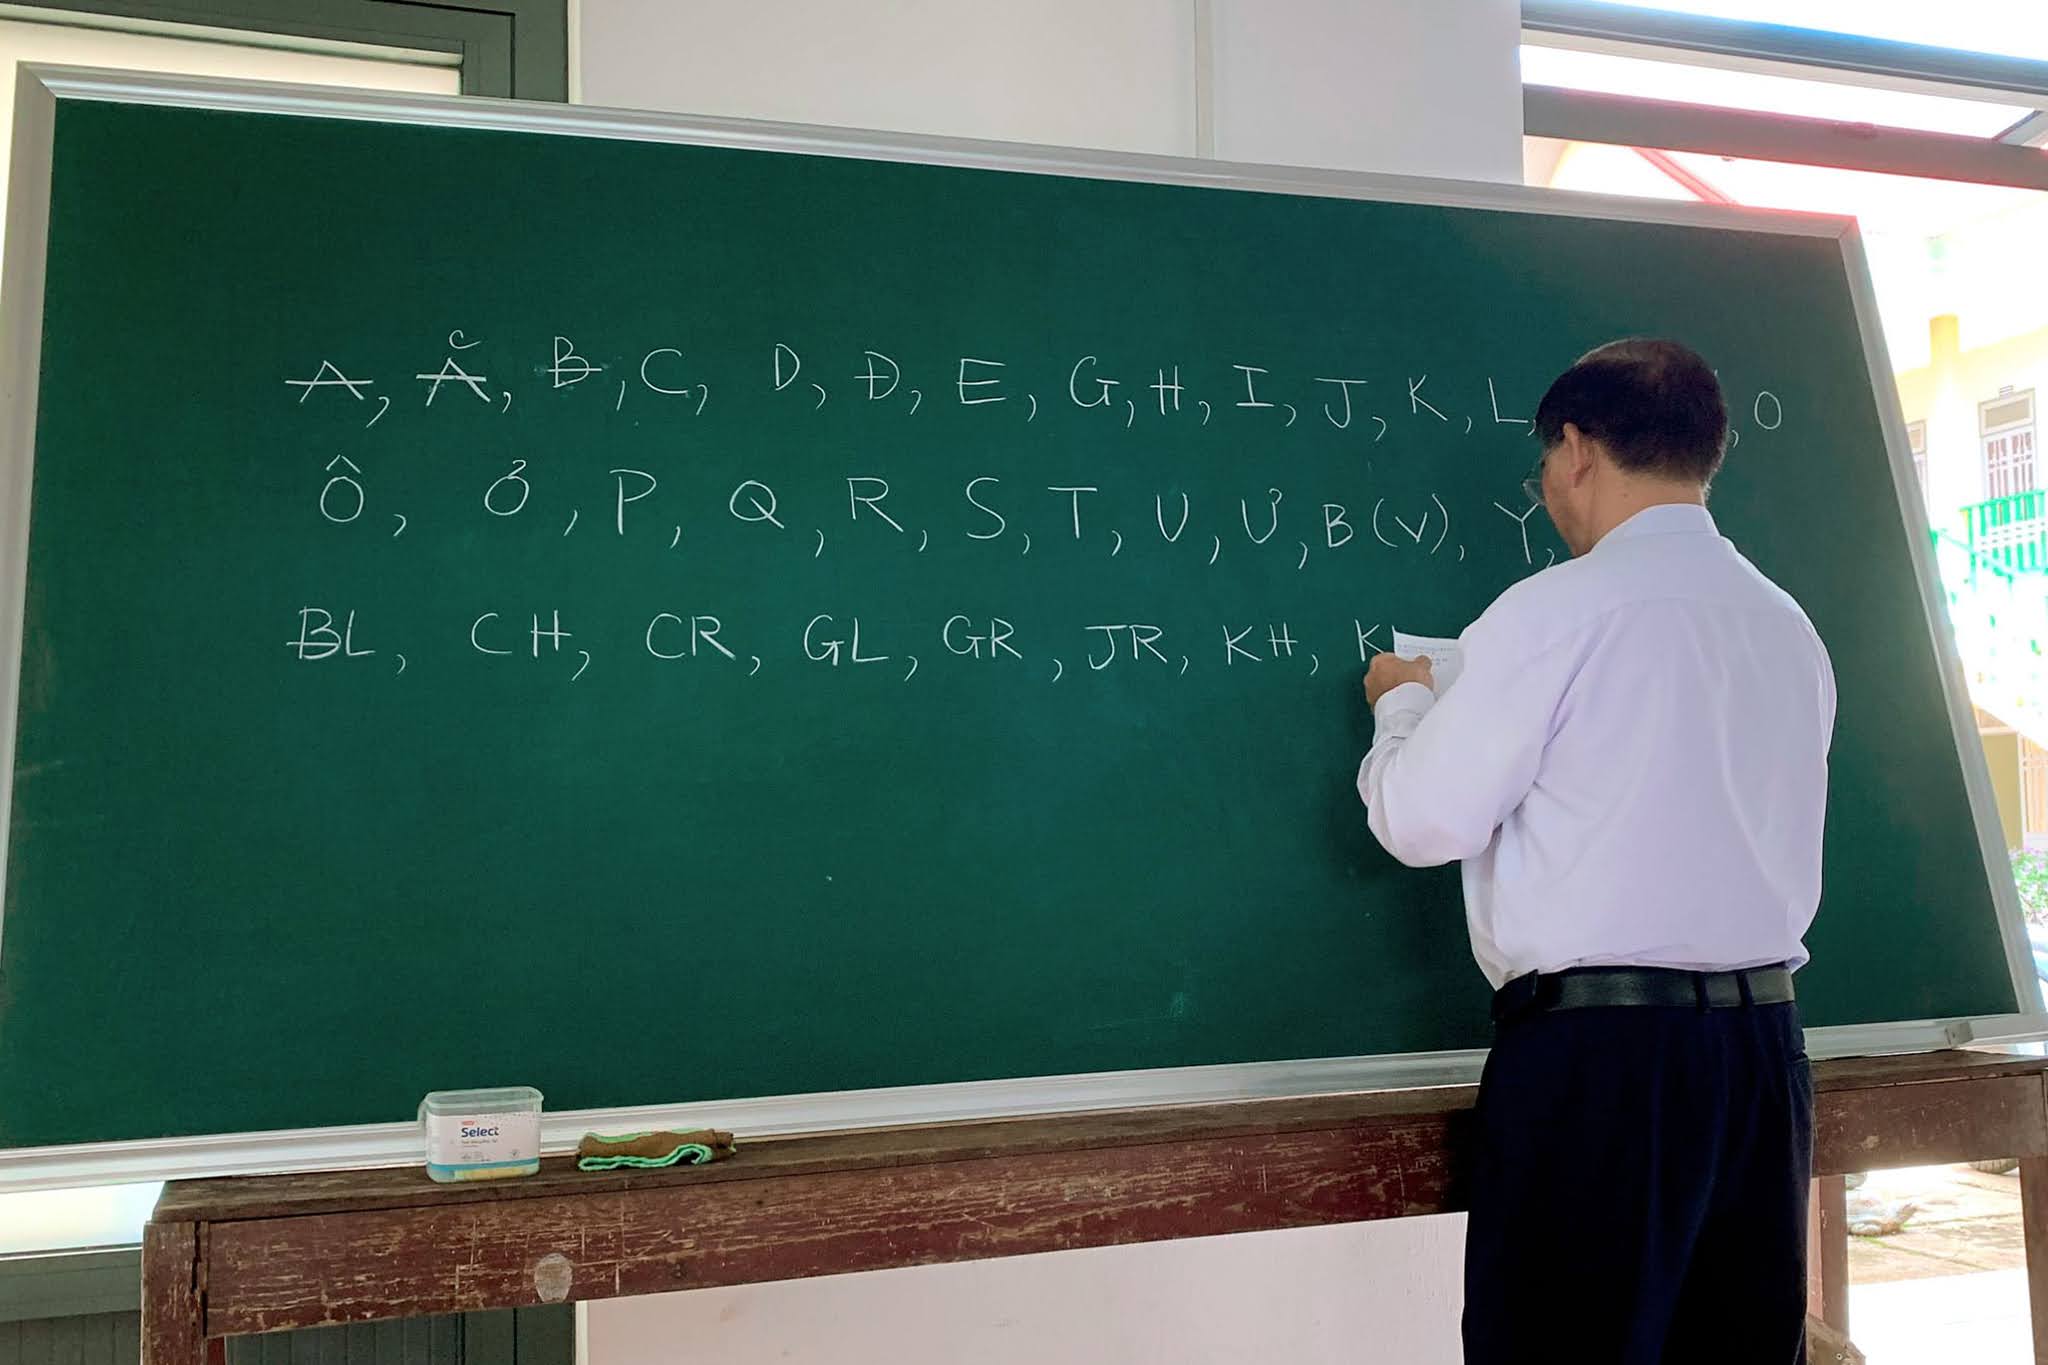 A, Ă, B, C, D, Đ, E, G, H, I, J, K, L, , O
Ô, Ơ, P, Q, R, S, T, U, Ư, B (V), Y,
BL, CH, CR, GL, GR, JR, KH,
Select